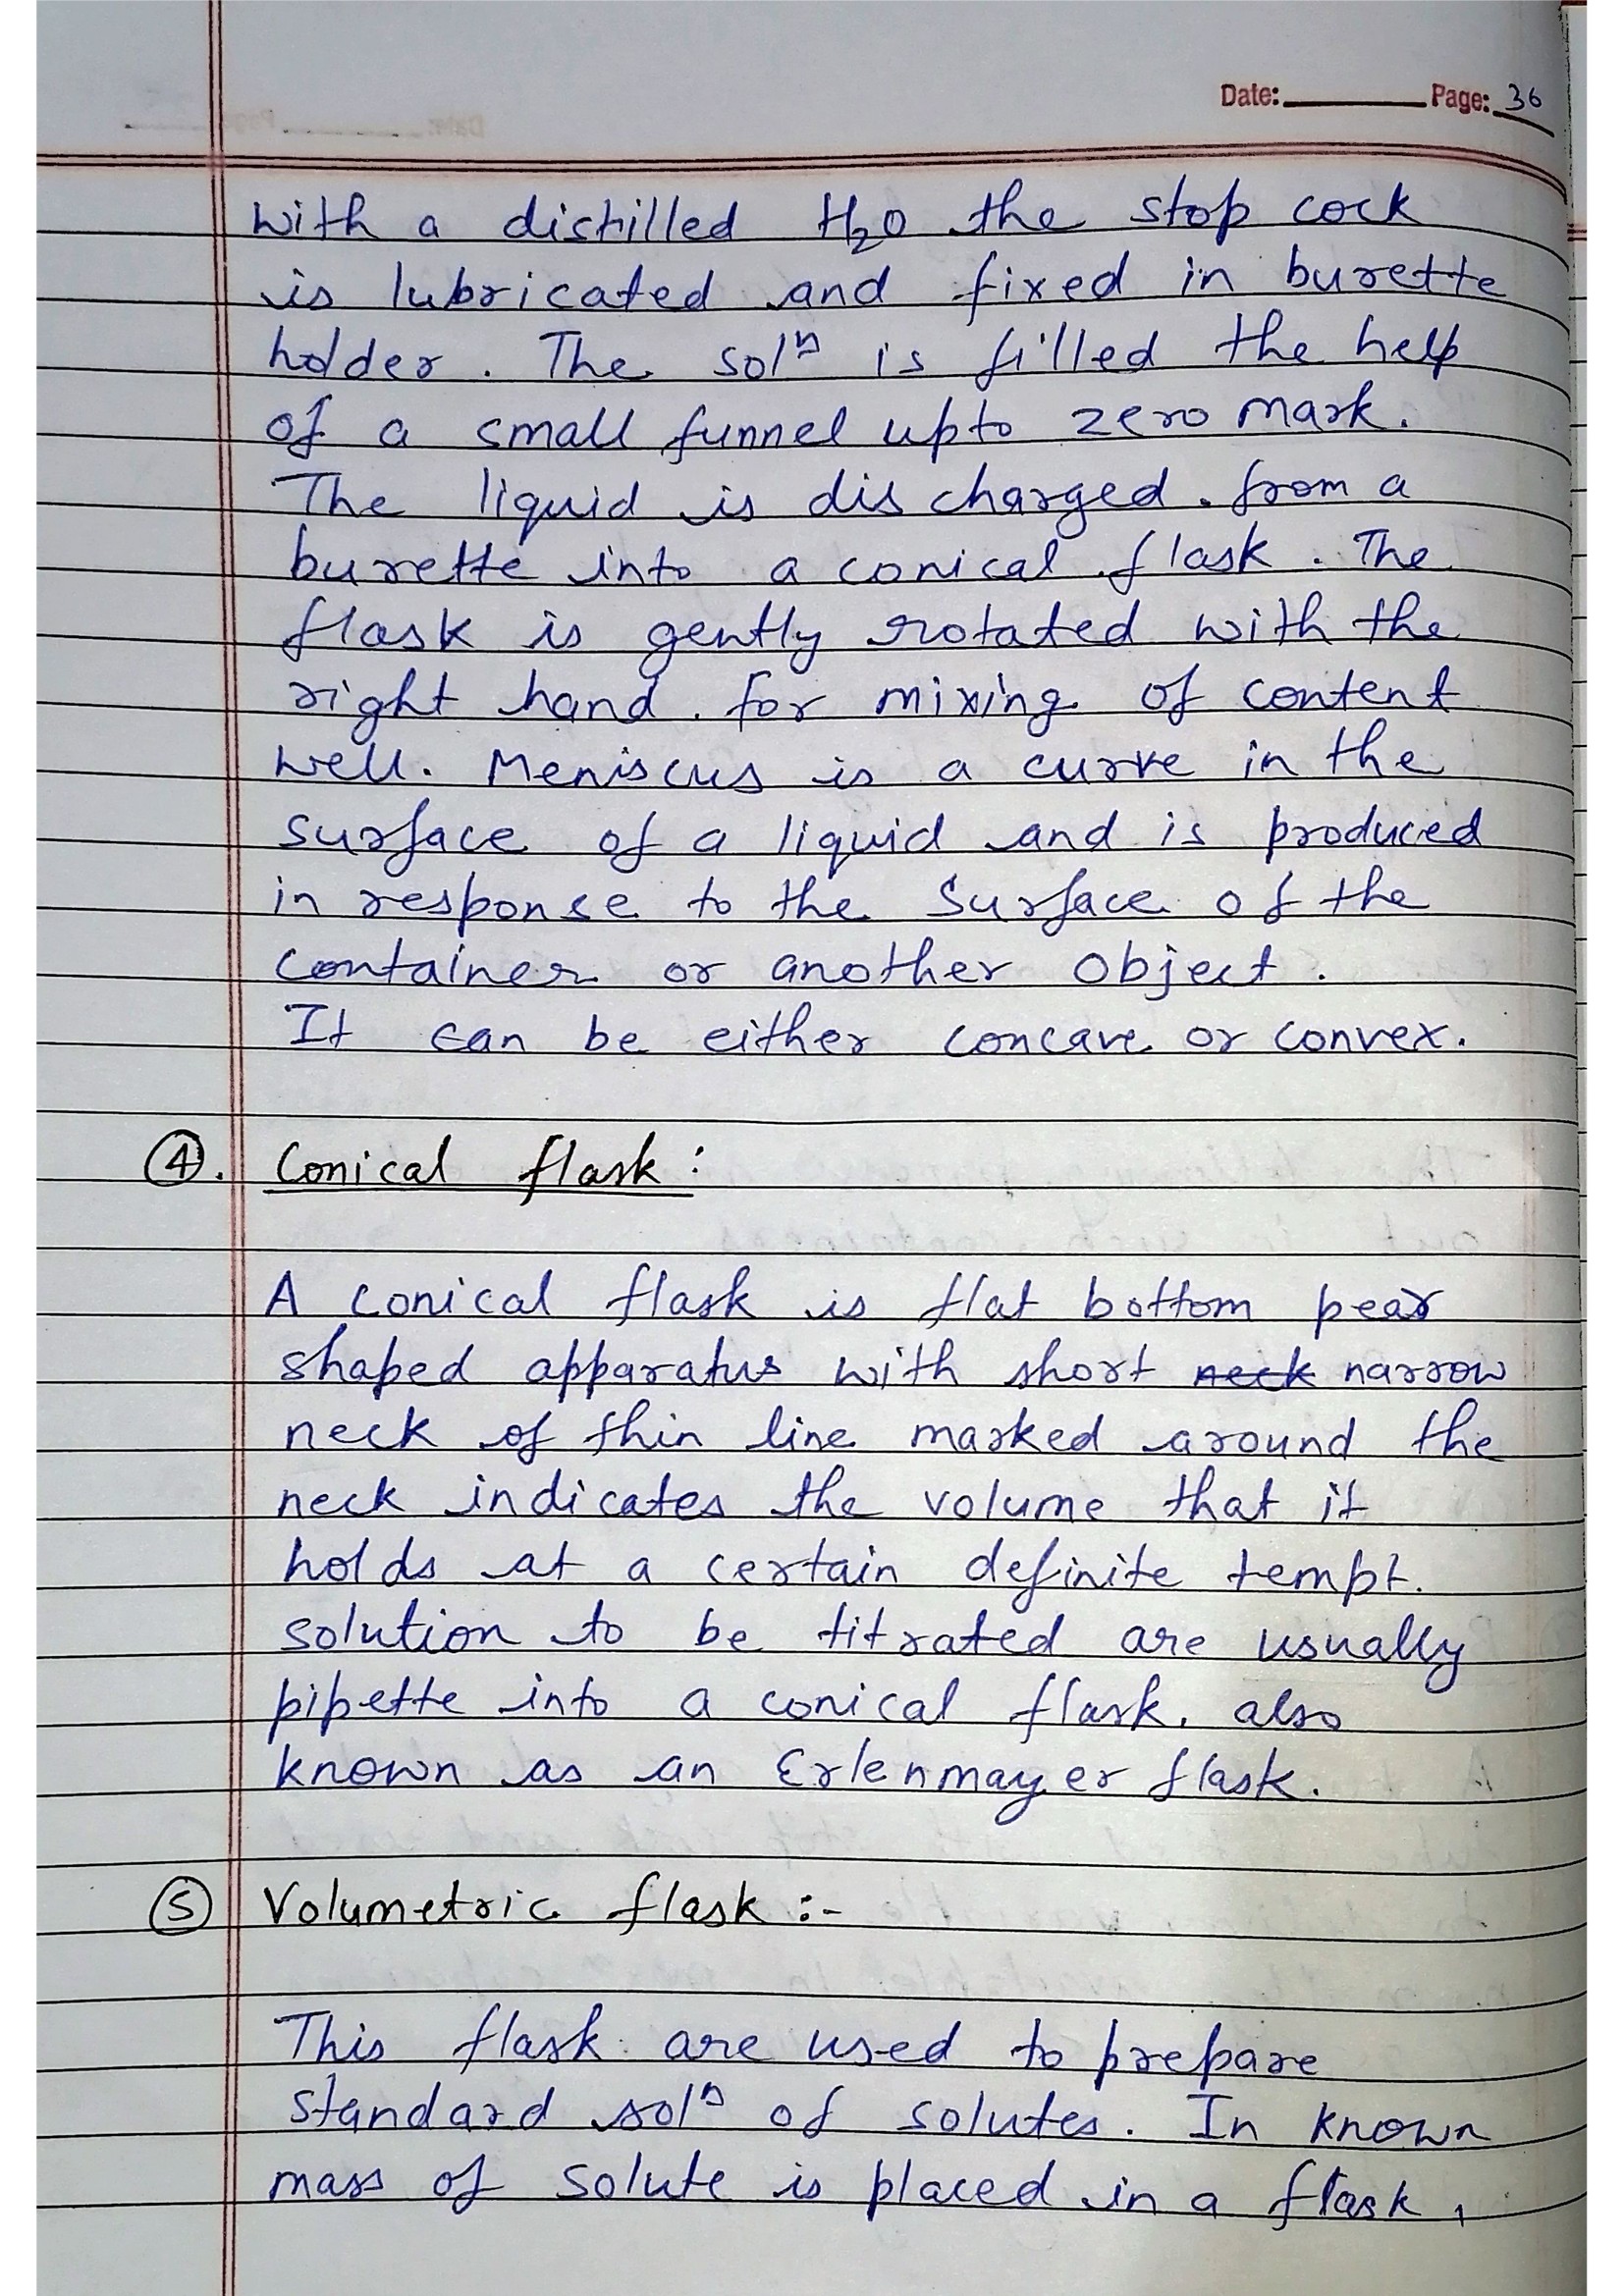 Date: Page: 36
with a distilled H₂O the stop cock
is lubricated and fixed in burette
holder. The solⁿ is filled the help
of a small funnel upto zero mark.
The liquid is dis charged from a
burette into a conical flask. The
flask is gently rotated with the
right hand for mixing of content
well. Meniscus is a curve in the
surface of a liquid and is produced
in response to the surface of the
container or another object.
It can be either concave or convex.
④. Conical flask:
A conical flask is flat bottom pear
shaped apparatus with short neck narrow
neck of thin line marked around the
neck indicates the volume that it
holds at a certain definite tempt.
solution to be titrated are usually
pipette into a conical flask, also
known as an Erlenmayer flask.
⑤ Volumetric flask :-
This flask are used to prepare
standard solⁿ of solutes. In known
mass of solute is placed in a flask,